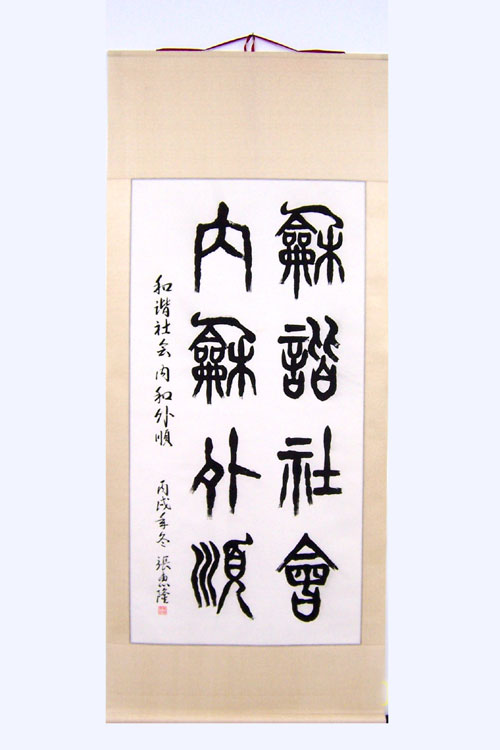 龢諧社會
內龢外順
和谐社会内和外順
丙戌年冬 張惠隆